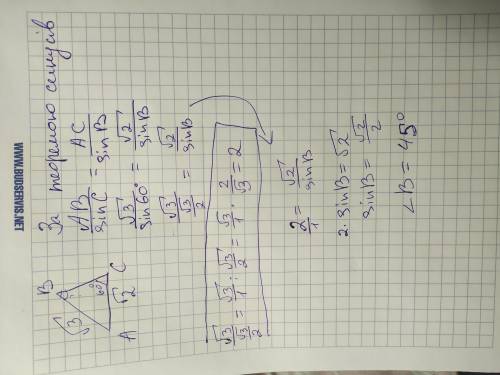 WWW.BUDSERVIS.NET
За теоремою синусів
B
√3
60°
A √2 C
AB/sinC = AC/sinB
√3/sin60° = √2/sinB
√3/(√3/2) = √2/sinB
√3/(√3/2) = √3/1 : √3/2 = √3/1 · 2/√3 = 2
2/1 = √2/sinB
2·sinB=√2
sinB=√2/2
∠B = 45°